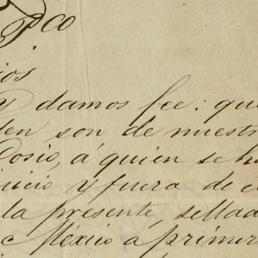 pco
ios
y damos fee: que
den son de nuestr
Cosio, á quien se ha
uicio, y fuera de e
la presente, sellad
e México á primer